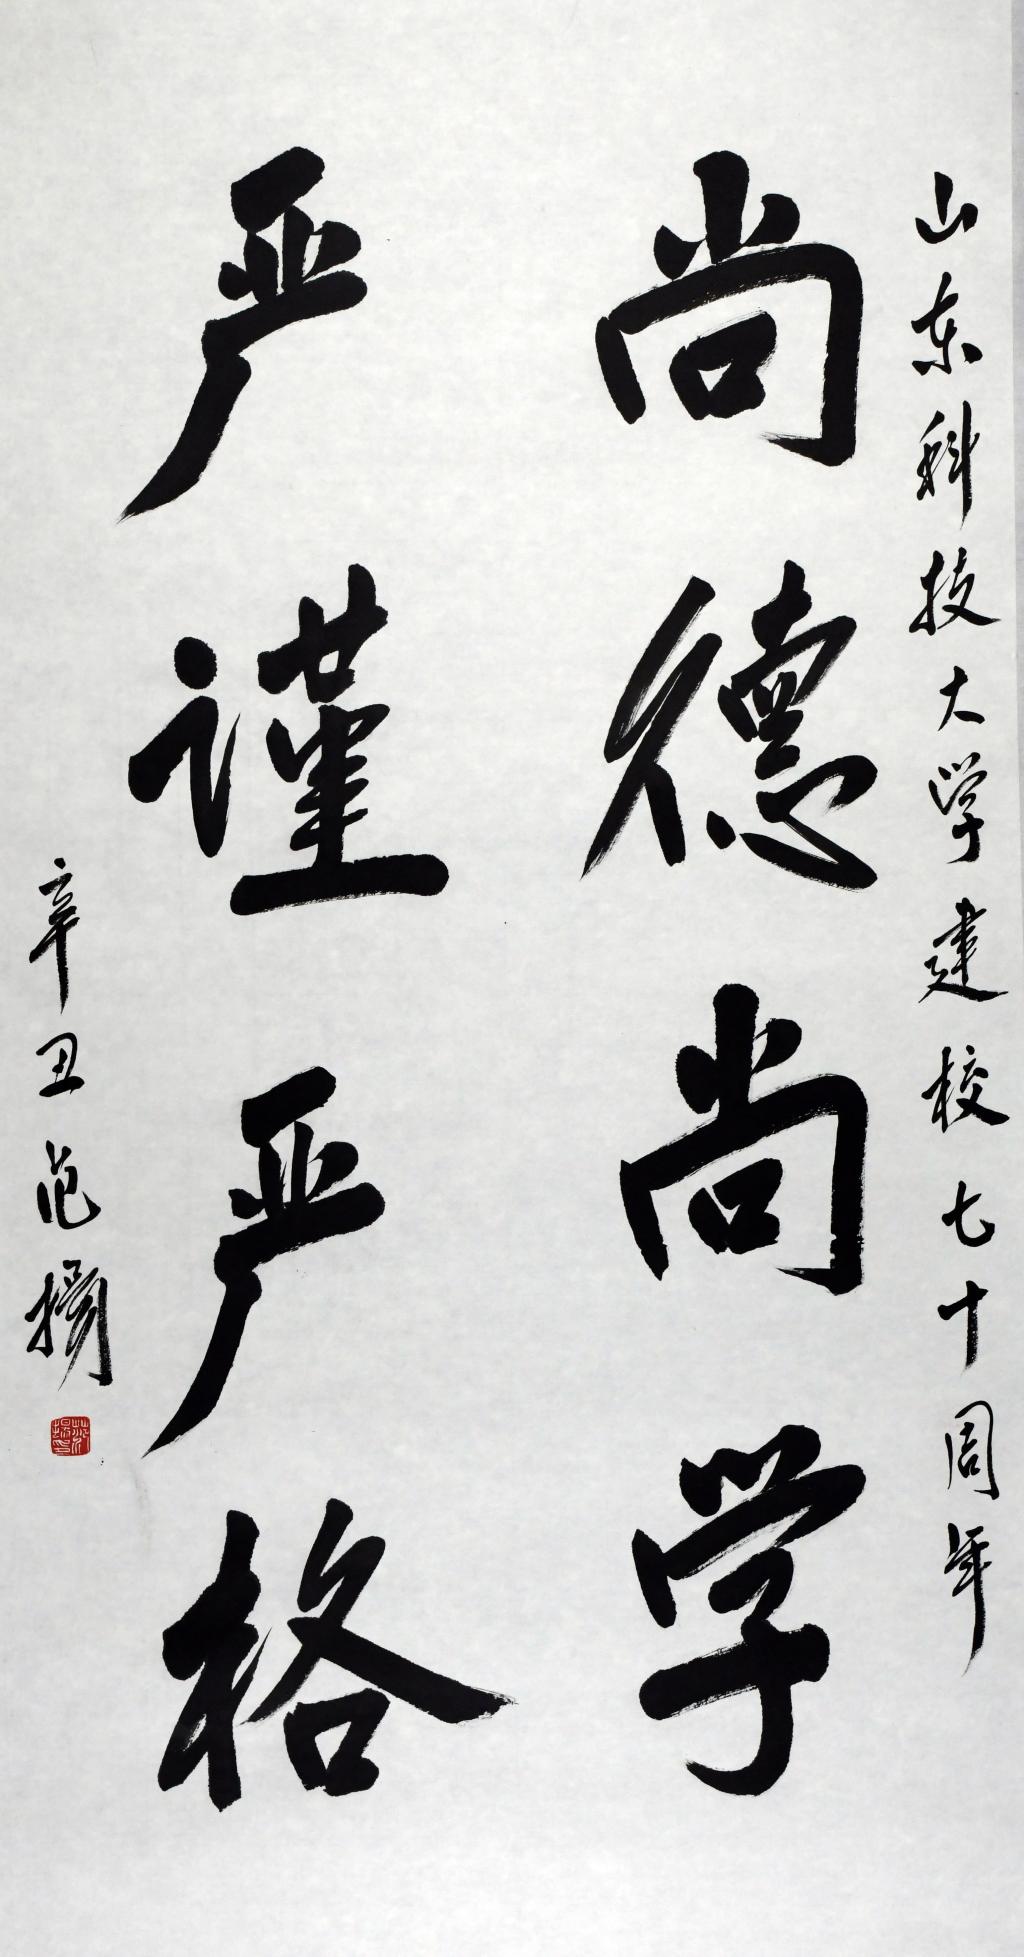 山东科技大学建校七十周年
尚德尚学
严谨严格
辛丑范扬